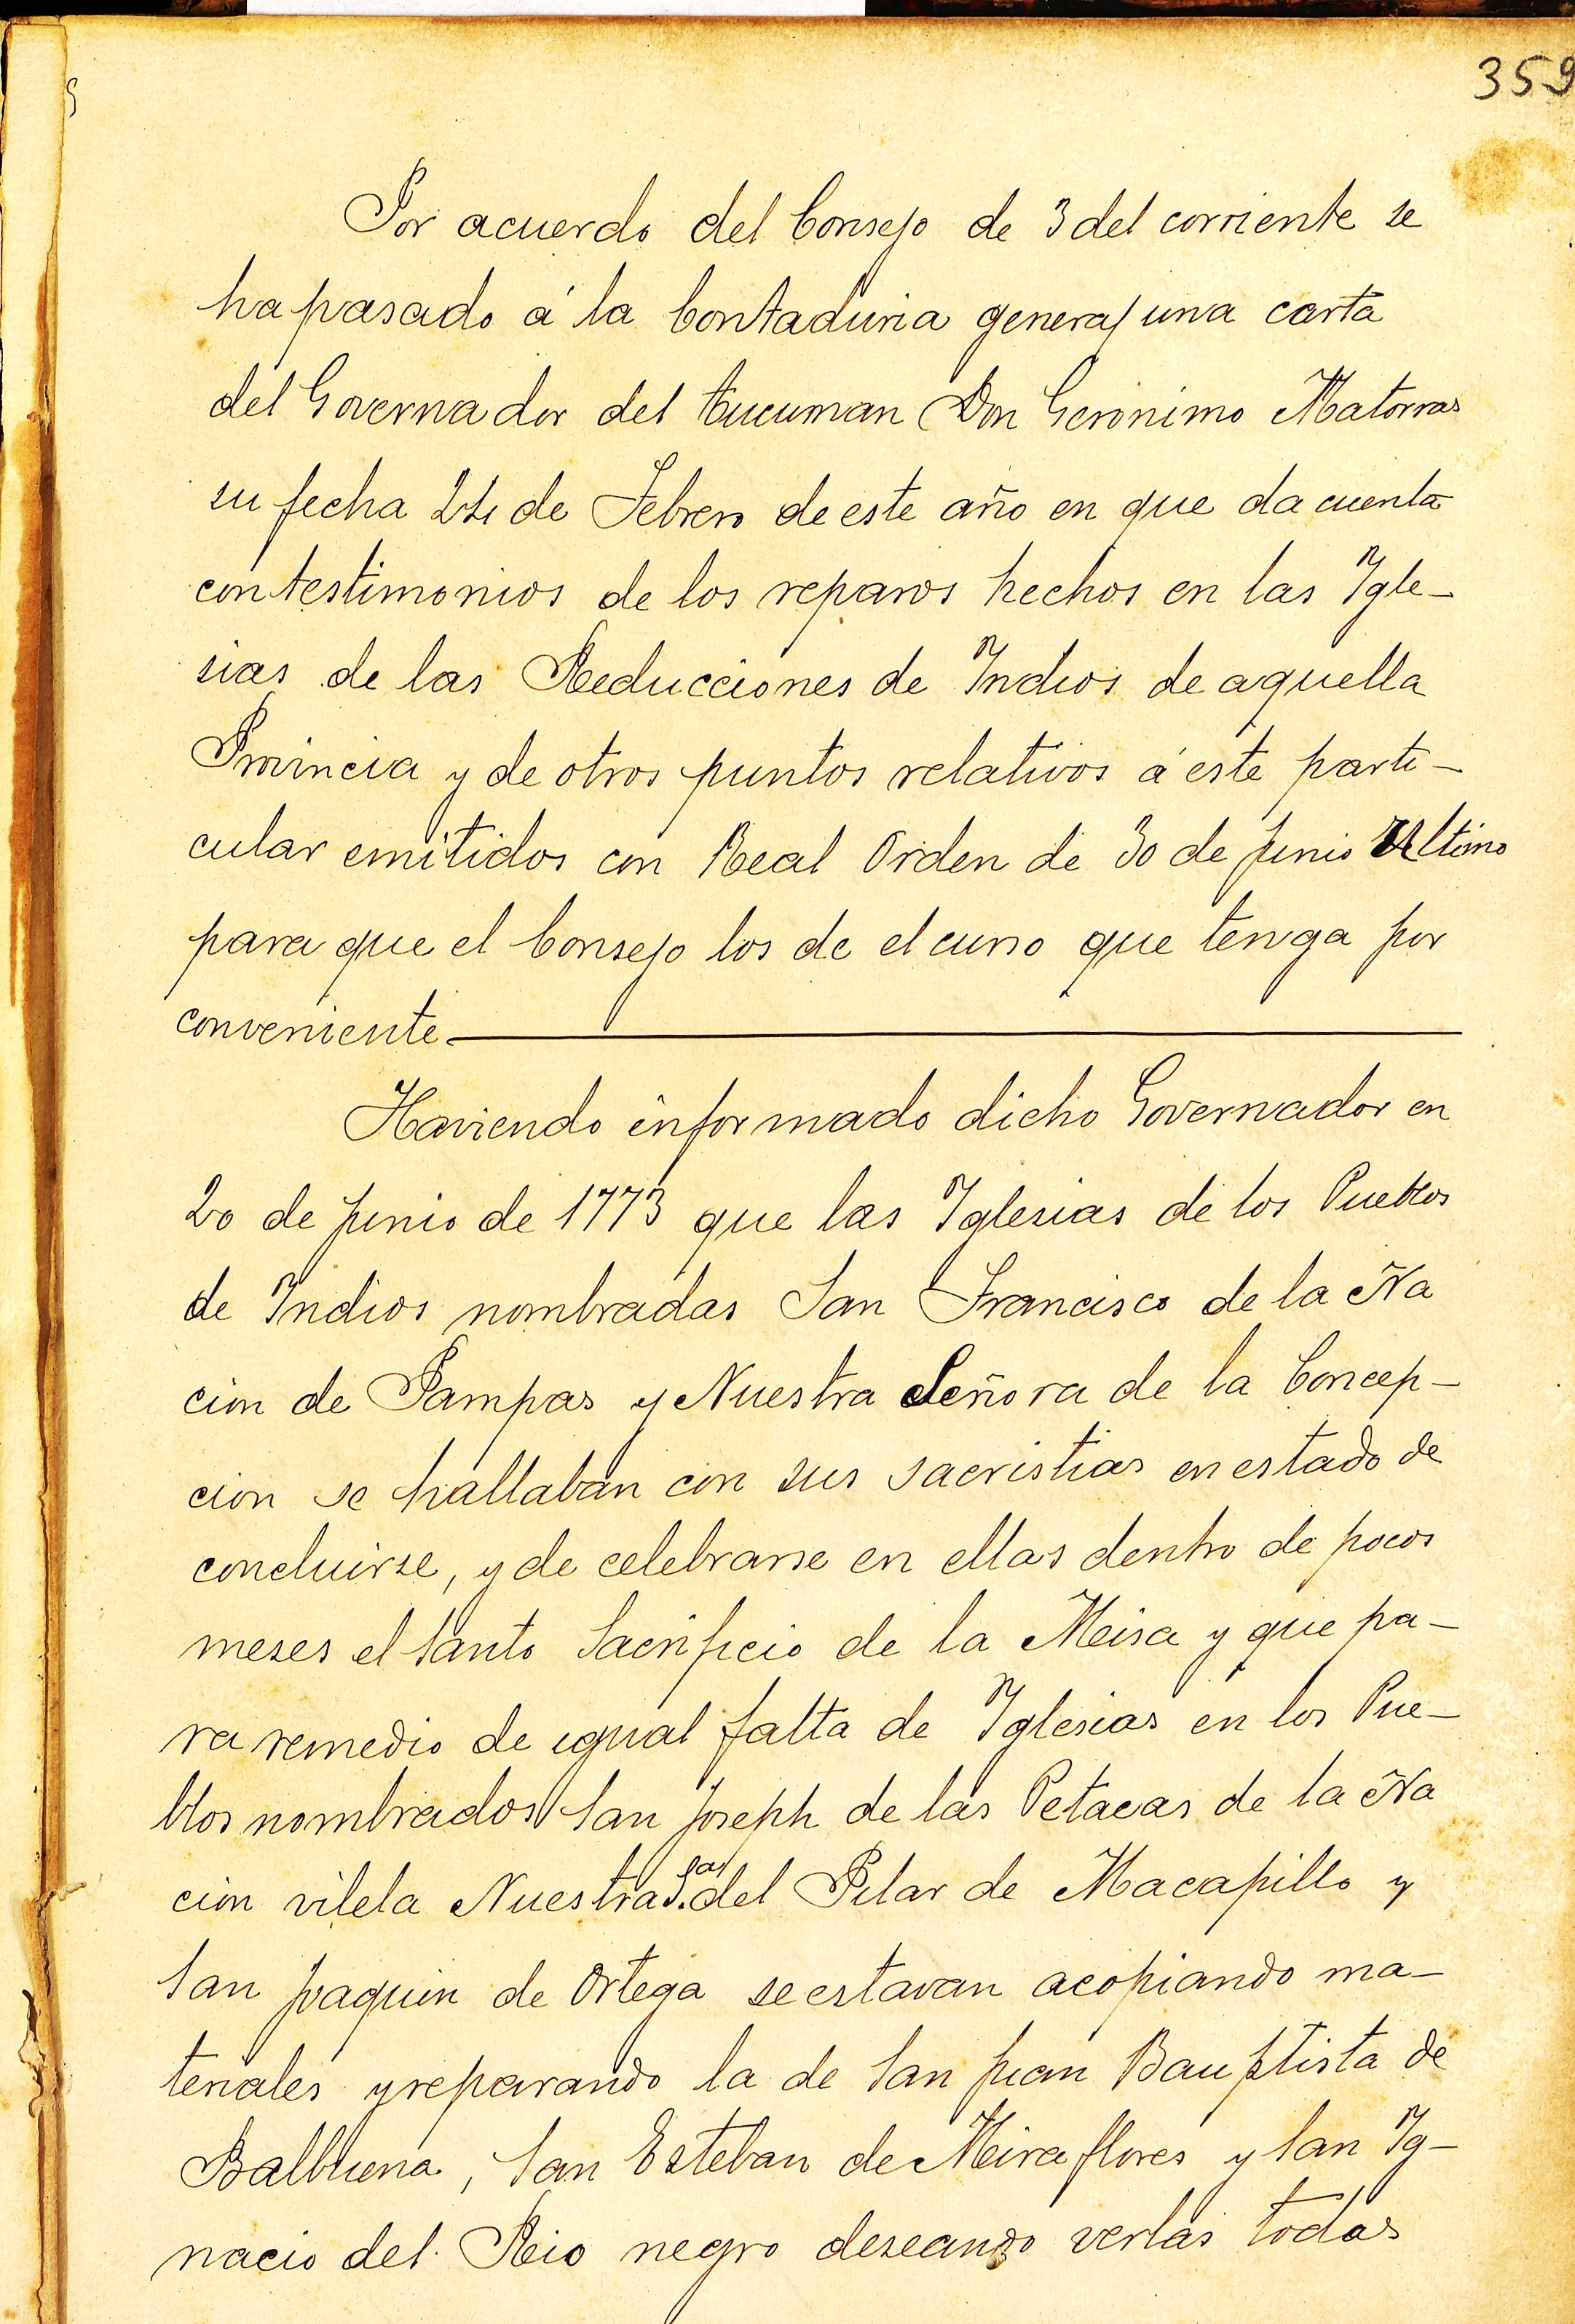 359
Por acuerdo del Consejo de 3 del corriente se
ha pasado á la Contaduria general una carta
del Governador del tucuman Don Geronimo Matorras
su fecha 24 de Febrero de este año en que da cuenta
con testimonios de los reparos hechos en las Igle-
sias de las Reducciones de Indios de aquella
Provincia y de otros puntos relativos á este parti-
cular emitidos con Real Orden de 30 de Junio Ultimo
para que el Consejo los de el curso que tenga por
conveniente
Haviendo informado dicho Governador en
20 de Junio de 1773 que las Iglesias de los Pueblos
de Indios nombradas San Francisco de la Na
cion de Pampas y Nuestra Señora de la Concep-
cion se hallaban con sus sacristias en estado de
concluirse, y de celebrarse en ellas dentro de pocos
meses el Santo Sacrificio de la Meisa y que pa-
ra remedio de igual falta de Iglesias en los Pue-
blos nombrados San Joseph de las Petacas de la Na
cion vilela Nuestra S.ª del Pilar de Macapillo y
San Joaquin de Ortega se estavan acopiando ma-
teriales y reparando la de San Juan Bauptista de
Balbuena, San Esteban de Meiraflores y San Ig-
nacio del Reio negro deseando verlas todas